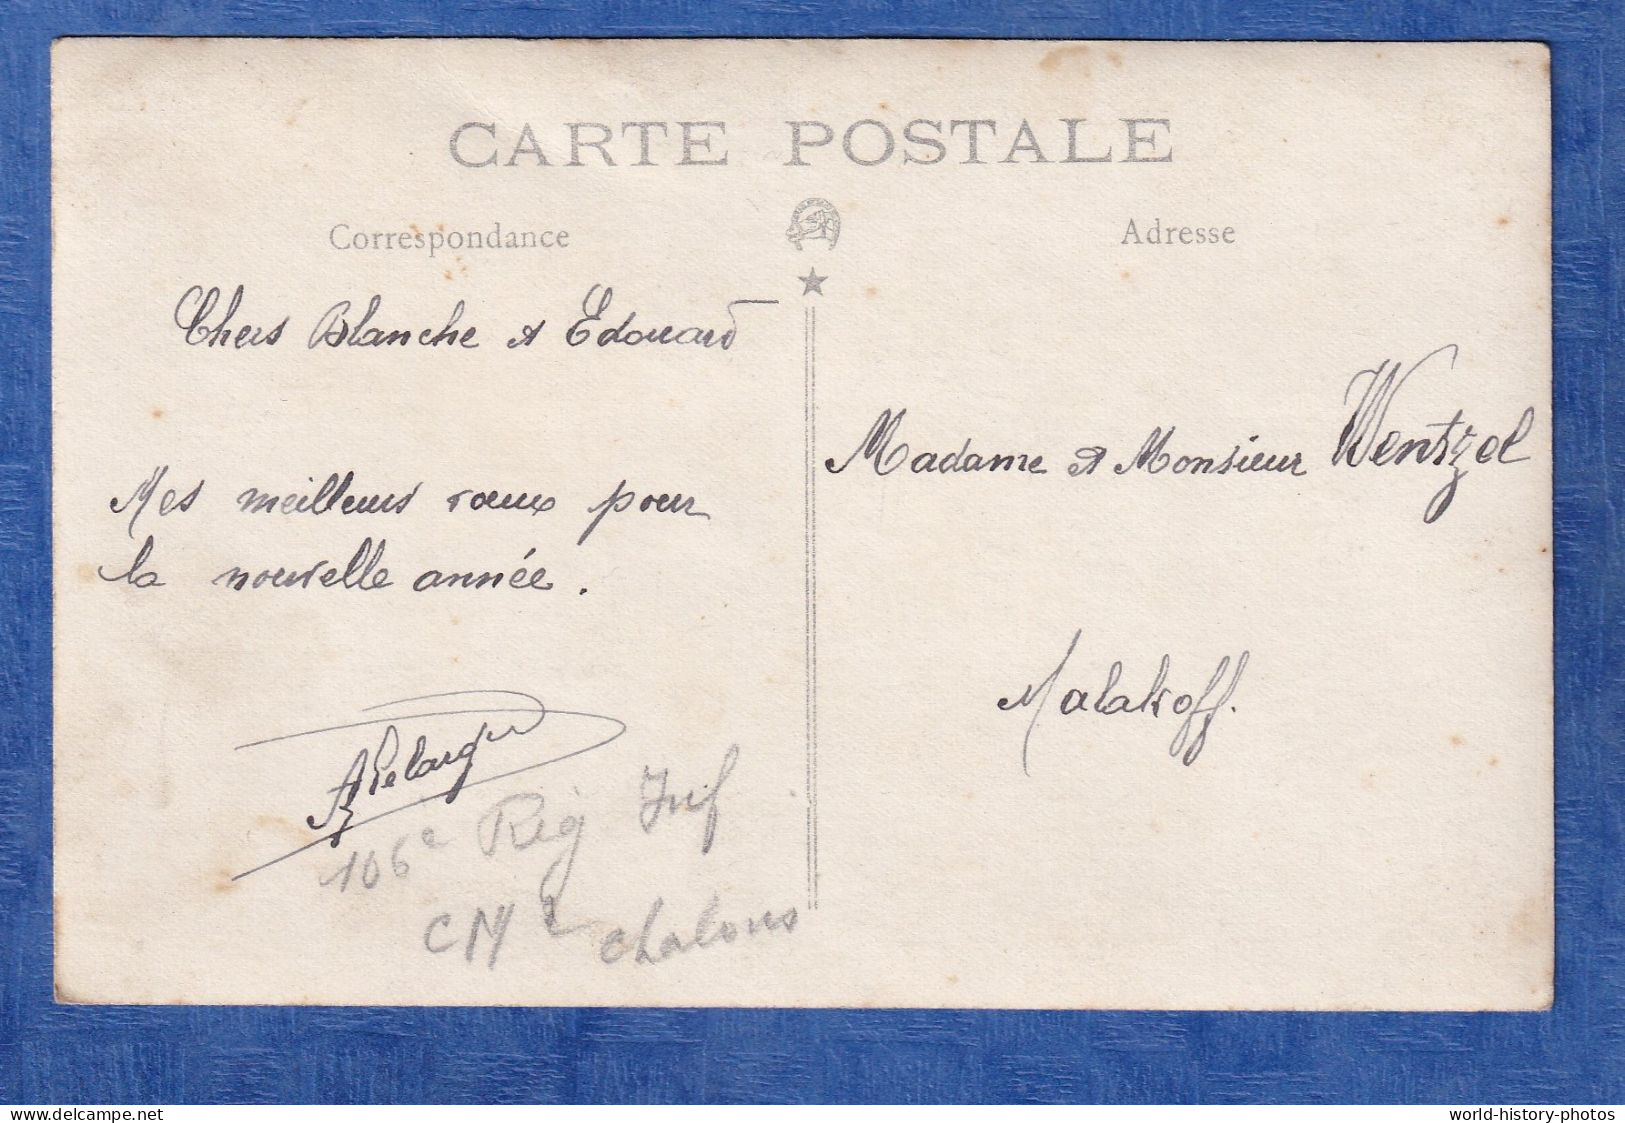 CARTE POSTALE
Correspondance
Adresse
Chers Blanche et Edouard
Mes meilleurs vœux pour
la nouvelle année.
106e Rég Inf
CM2 Chalons
Madame et Monsieur Wentzel
Malakoff.
www.delcampe.net
world-history-photos